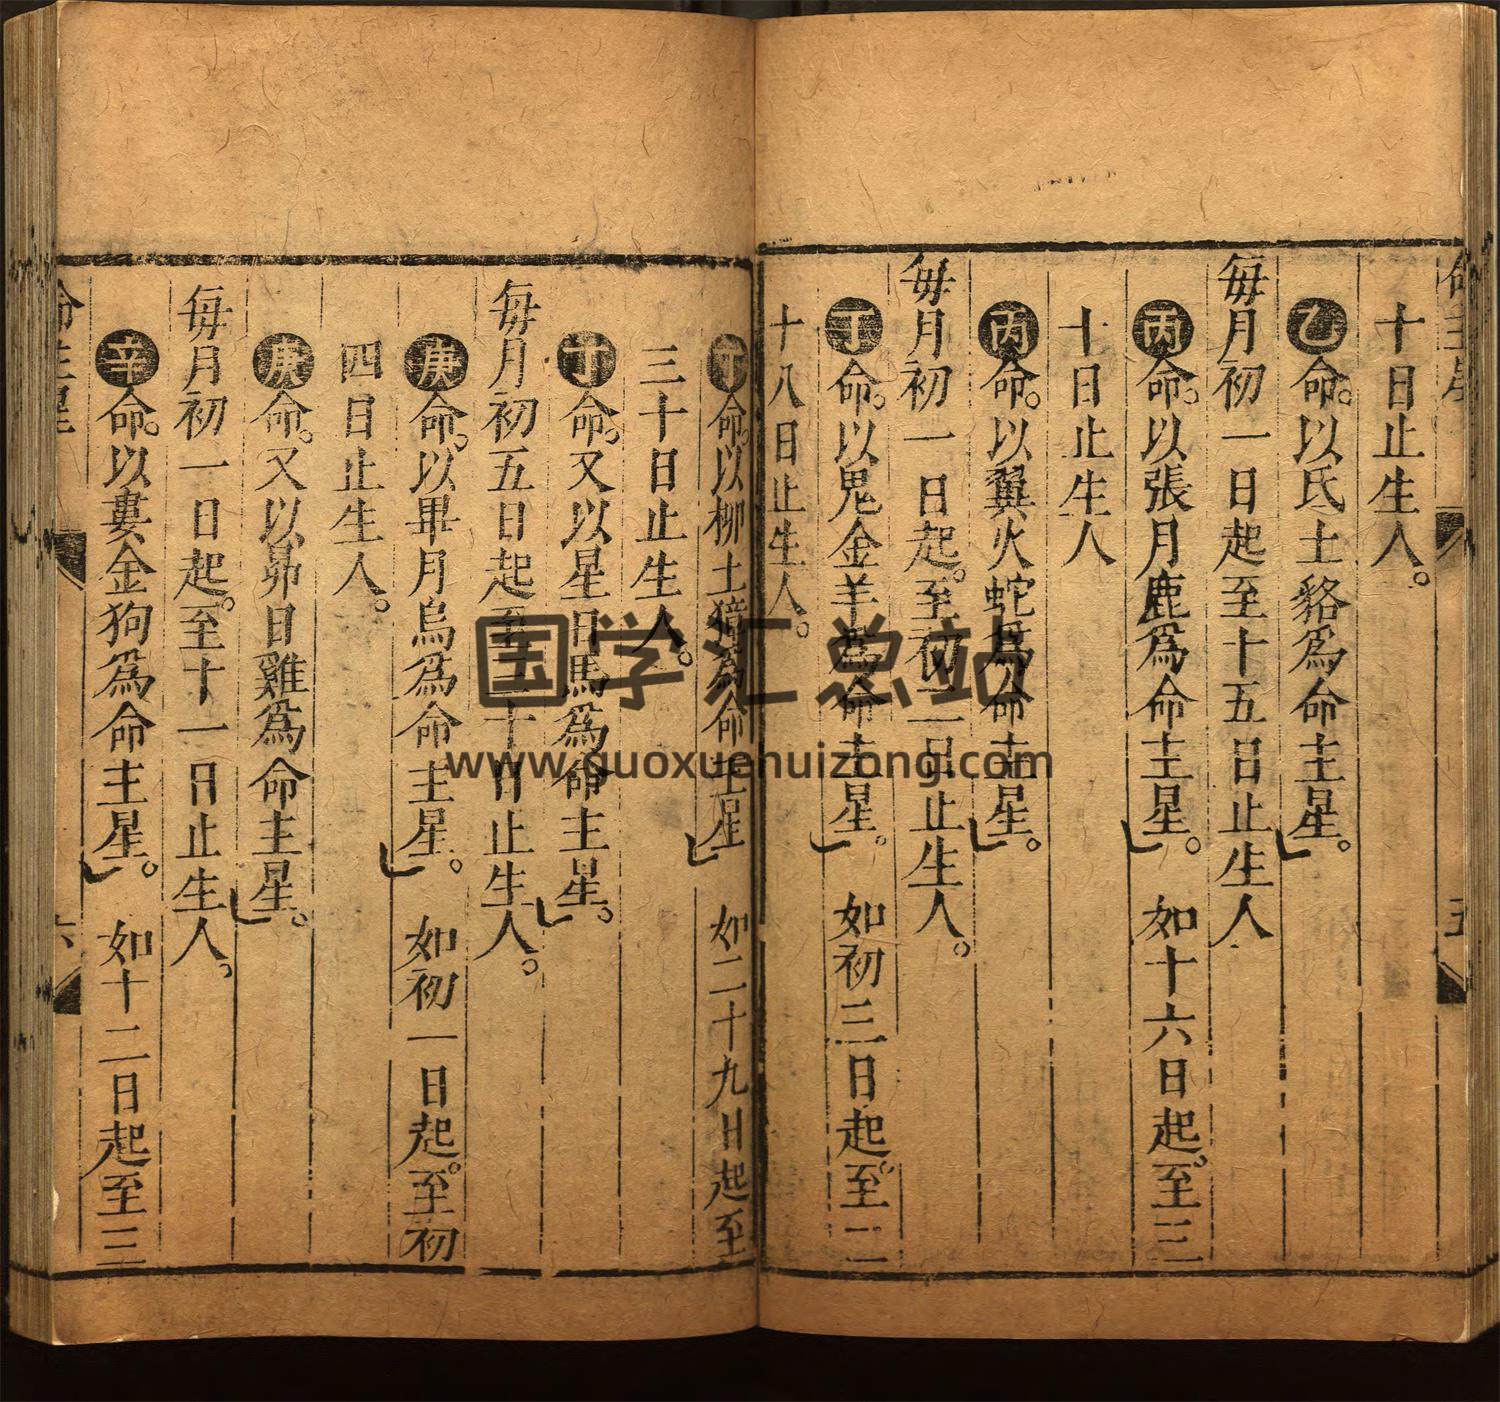 命主星 五
十日止生人。
乙命。以氐土貉爲命主星。
每月初一日起至十五日止生人
丙命。以張月鹿爲命主星。 如十六日起。至三
十日止生人
丙命。以翼火蛇爲命主星。
每月初一日起。至初二日止生人。
丁命。以鬼金羊爲命主星。 如初三日起。至二
十八日止生人。
丁命。以柳土獐爲命主星 如二十九日起至
三十日止生人。
丁命。又以星日馬爲命主星。
每月初五日起至三十日止生人。
庚命。以畢月烏爲命主星。 如初一日起。至初
四日止生人。
庚命。又以昴日雞爲命主星。
每月初一日起。至十一日止生人。
辛命。以婁金狗爲命主星。 如十二日起至三
命主星 六
国学汇总站
www.guoxuehuizong.com